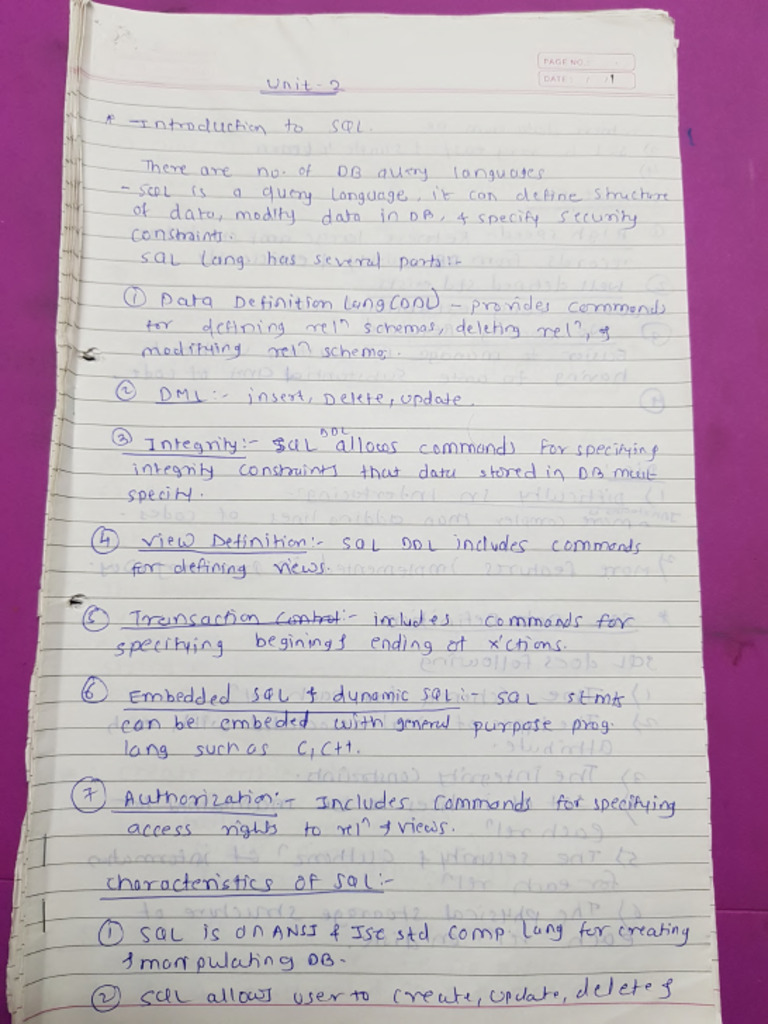 PAGE NO.:
DATE: / /1
Unit-2
* -Introduction to SQL.
There are no. of DB query languages
- SQL is a query language, it can define structure
of data, modify data in DB, & specify security
constraints.
SQL lang has several parts:-
① Data Definition Lang(DDL) - provides commands
for defining relⁿ schemas, deleting relⁿ, &
modifying relⁿ schema.
② DML:- insert, Delete, Update.
③ Integrity:- SQL DDL allows commands for specifying
integrity constraints that data stored in DB must
specify.
④ View Definition:- SQL DDL includes commands
for defining views.
⑤ Transaction Control:- includes commands for
specifying begining & ending of x'ctions.
⑥ Embedded SQL & dynamic SQL:- SQL stmts
can be embeded with general purpose prog.
lang such as C, C++.
⑦ Authorization:- Includes commands for specifying
access rights to relⁿ & views.
Characteristics of SQL:-
① SQL is an ANSI & ISO std comp. lang for creating
& manipulating DB.
② SQL allows user to create, update, delete &